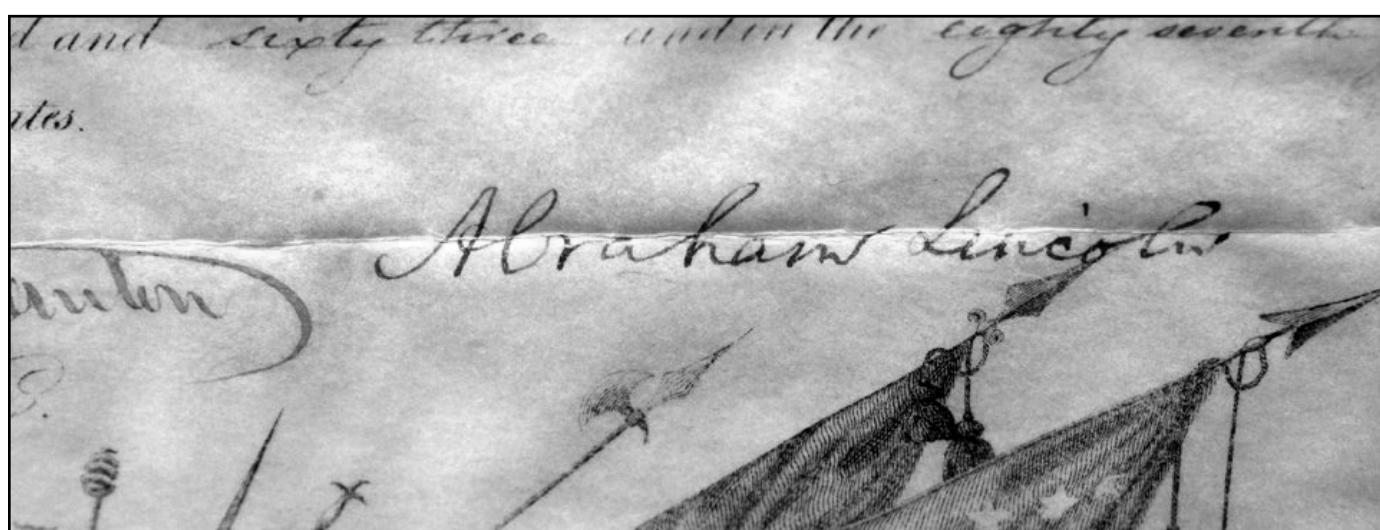 d and sixty three and in the eighty seventh
ates.
Abraham Lincoln
anton